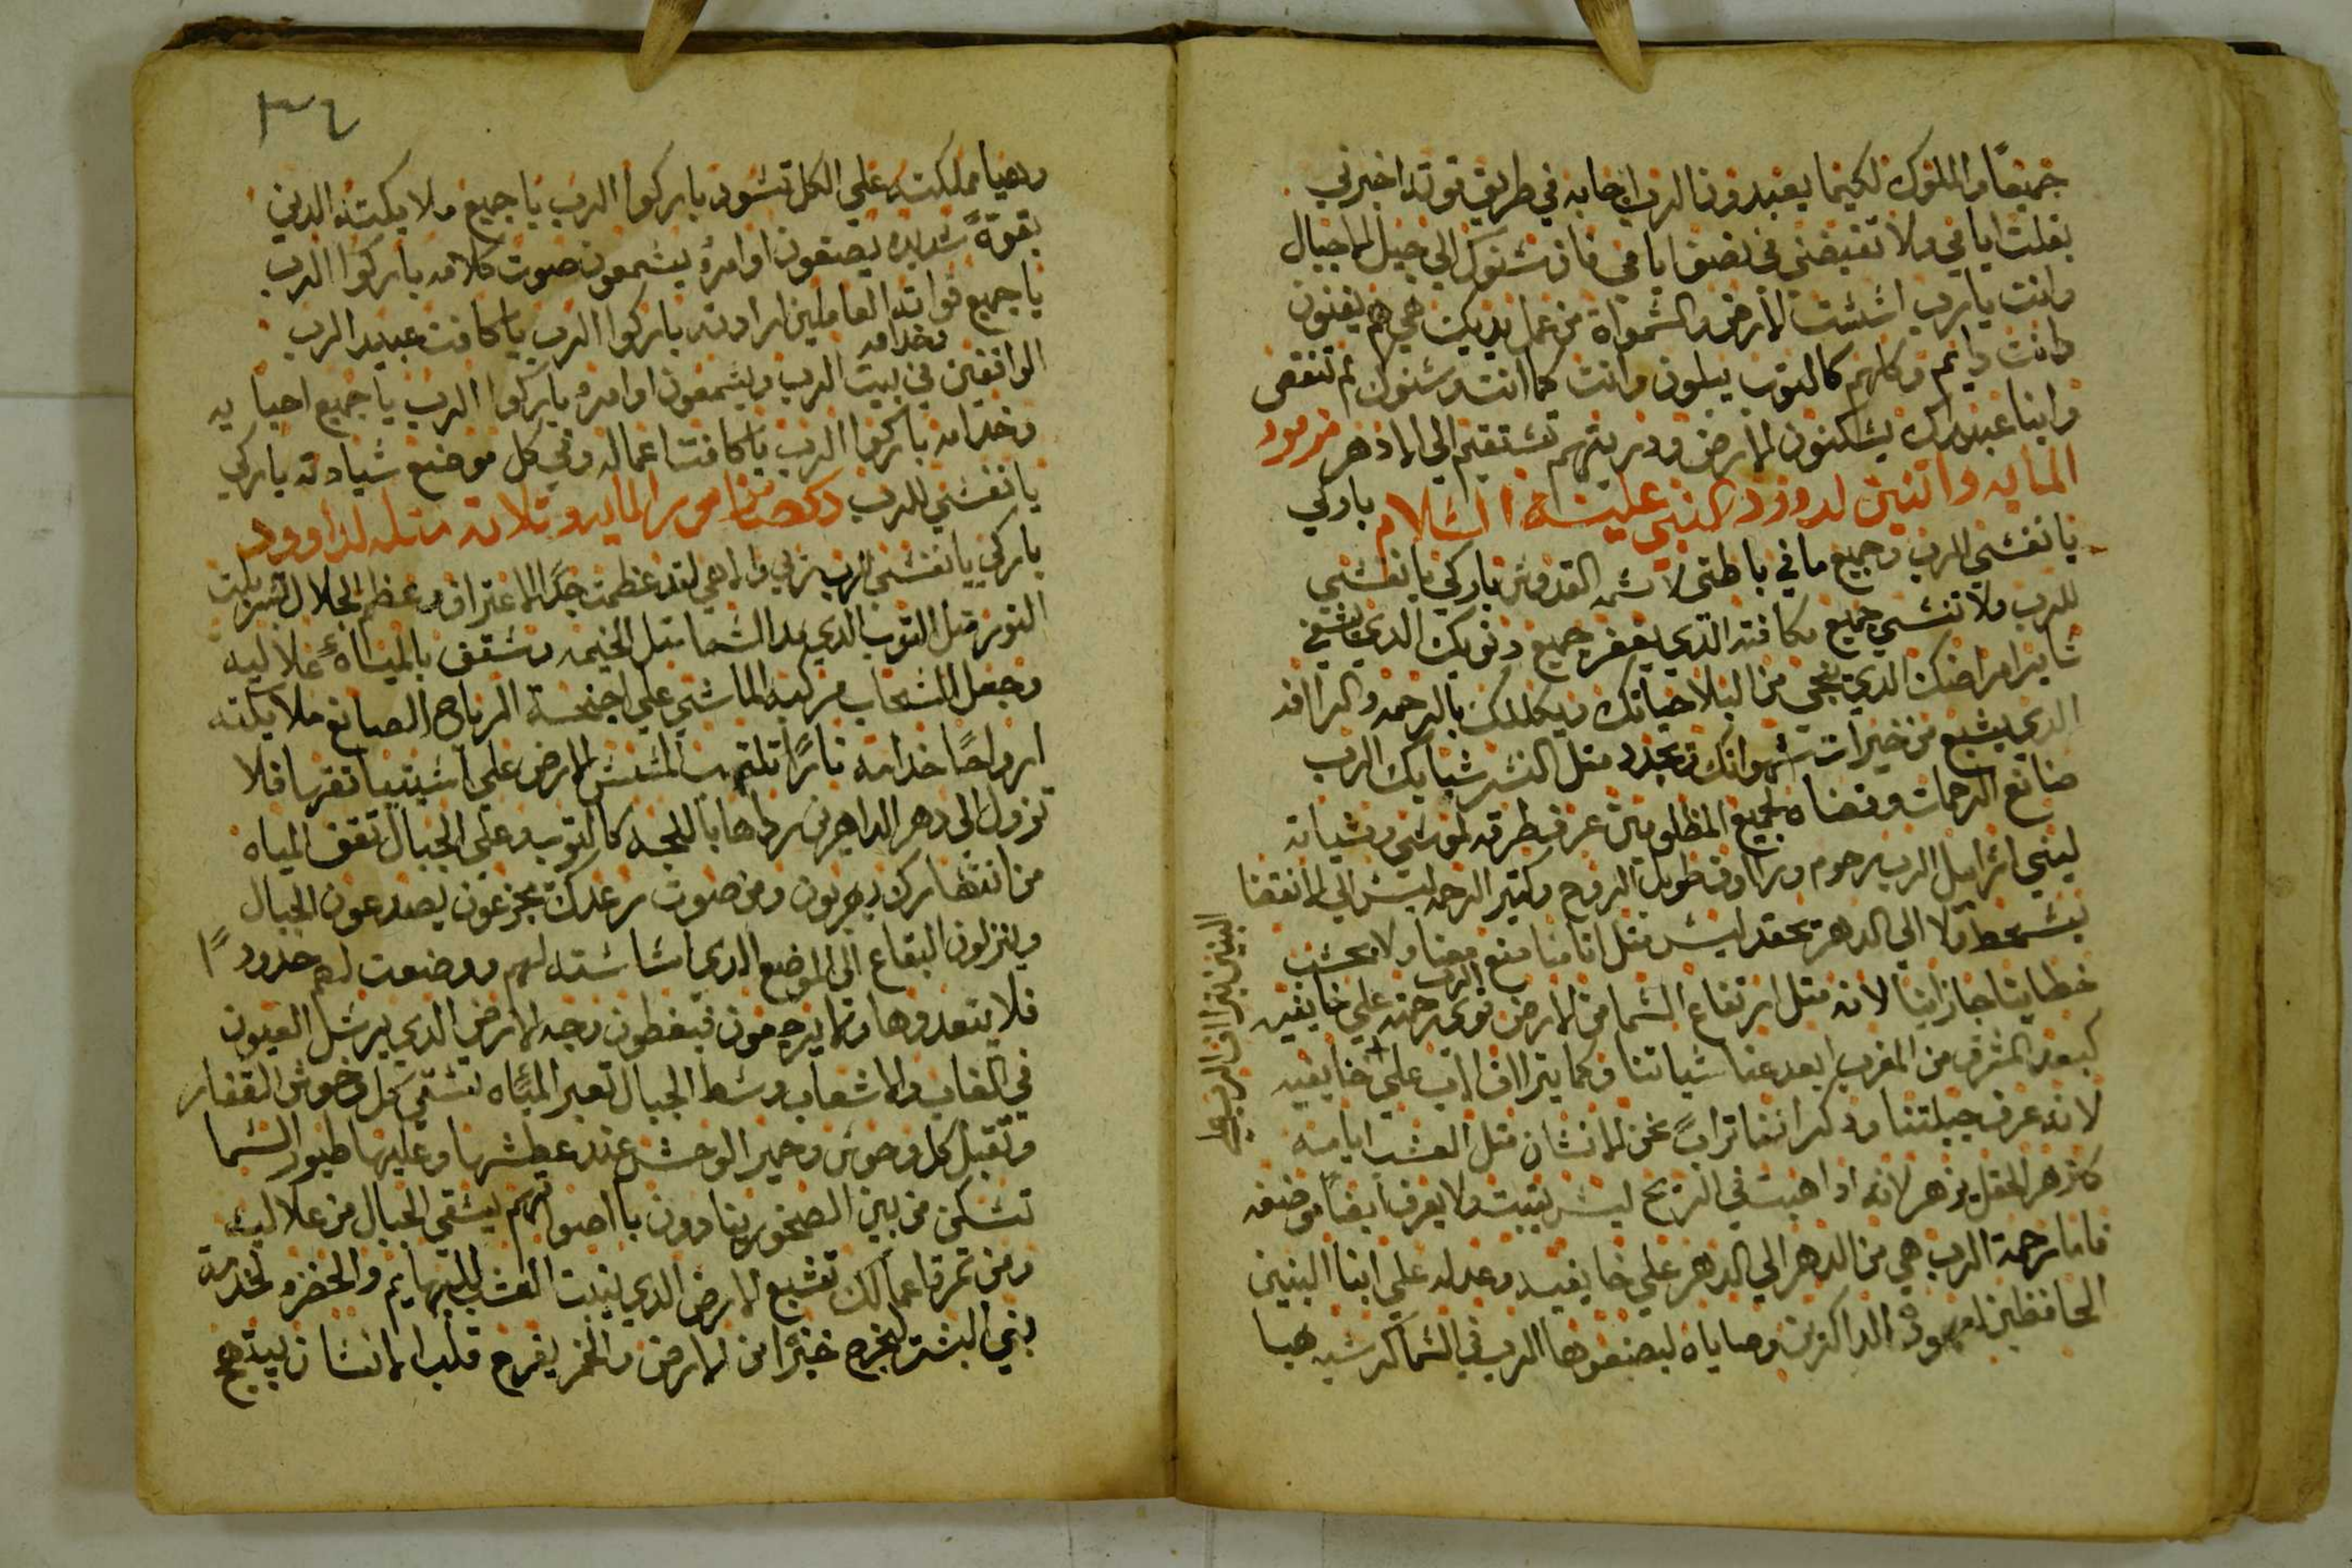 جميعًا والملوك لكيما يعبدون الرب اجابه في طريق قوته اخبرني
بقلت ايامي ولا تقبضني في نصف ايامي فان سنوك الي جيل الاجيال
وانت يارب اسست الارض والسموات من عمل يديك هي هم يفنون
وانت دايم وكلهم كالتوب يبلون وانت كما انت وسنوك لم تنقص
وابنا عبيدك يسكنون الارض ودريتهم تستقيم الي الادهر مزمور
المايه واتنين لدوود النبي عليه السلام باركي
يا نفسي للرب وجميع ما في باطني لاسمه القدوس باركي يا نفسي
للرب ولا تنسي جميع مكافته الذي يغفر جميع دنوبك الدي يشفي
ساير امراضك الدي ينجي من البلا حياتك ويكللك بالرحمه والراافه
الدي يشبع من خيرات شهواتك ويجدد متل النسر شبابك الرب
صانع الرحمات وقضاه لجميع المظلومين عرف طرقه لموسي ومشياته
لبني اسراييل الرب رحوم وراوف طويل الروح وكتير الرحمه ليس الي الانقضا
يسخط ولا الي الدهر يحقد ليس متل اتامنا صنع معنا ولا بحسب
خطايانا جازانا لانه متل ارتفاع السما من الارض قوي الرب رحمته علي خايفيه
كبعد المشرق من المغرب ابعد عنا سياتنا وكما يتراااف الاب علي خايفيه
البنين يتراااف الرب علي
لانه عرف جبلتنا ودكر اننا تراب نحن الانسان متل العشب ايامه
كزهر الحقل يزهر لانه ادا هبت في الريح ليس يتبت ولا يعرف ايضًا موضعه
فاما رحمة الرب هي من الدهر الي الدهر علي خايفيه وعدله علي ابنا البنين
الحافظين لعهوده الداكرين وصاياه ليصنعوها الرب في السما كرسيه هيا
٣٤
وهيا مملكته علي الكل تسود باركوا الرب يا جميع ملايكته الدين
بقوة شديده يصنعون اوامره يسمعون صوت كلامه باركوا الرب
يا جميع قواته وخدامه العاملين ارادته باركوا الرب يا كافت عبيد الرب
الواقفين في بيت الرب ويسمعون اوامره باركوا الرب يا جميع احبايه
وخدامه باركوا الرب يا كافت اعماله وفي كل موضع سيادته باركي
يا نفسي للرب المايه وتلاته متله لداوود
باركي يا نفسي للرب ربي والاهي لقد عظمت جدًا الاعتراف وعظم الجلال تسربلت
النور متل التوب الدي مد السما متل الخيمه وسقف بالمياه علاليه
وجعل السحاب مركبه الماشي علي اجنحة الرياح الصانع ملايكته
ارواحًا خدامه نارًا تلتهب المسس الارض علي اسيتها تقرها فلا
تزول الي دهر الداهرين رداها بااللجه كالتوب وعلي الجبال تقف المياه
من انتهارك يهربون ومن صوت رعدك يجزعون يصدعون الجبال
وينزلون البقاع الي الموضع الدي اساسته لهم ووضعت لهم حدودًا
فلا يتعدوها ولا يرجعون فيغطون وجه الارض الدي يرسل العيون
في الغاب والاشعاب وسط الجبال تعبر المياه تسقي كل وحوش القفار
وتقبل كل وحوش وحمير الوحش عند عطشها وعليها طيور السما
تسكن من بين الصخور ينادون بااصواتهم يسقي الجبال من علاليه
ومن تمرة اعمالك تشبع الارض الدي ينبت العشب للبهايم والخضر لخدمة
بني البشر ليخرج خبزًا من الارض والخمر يفرح قلب الانسان يبتهج